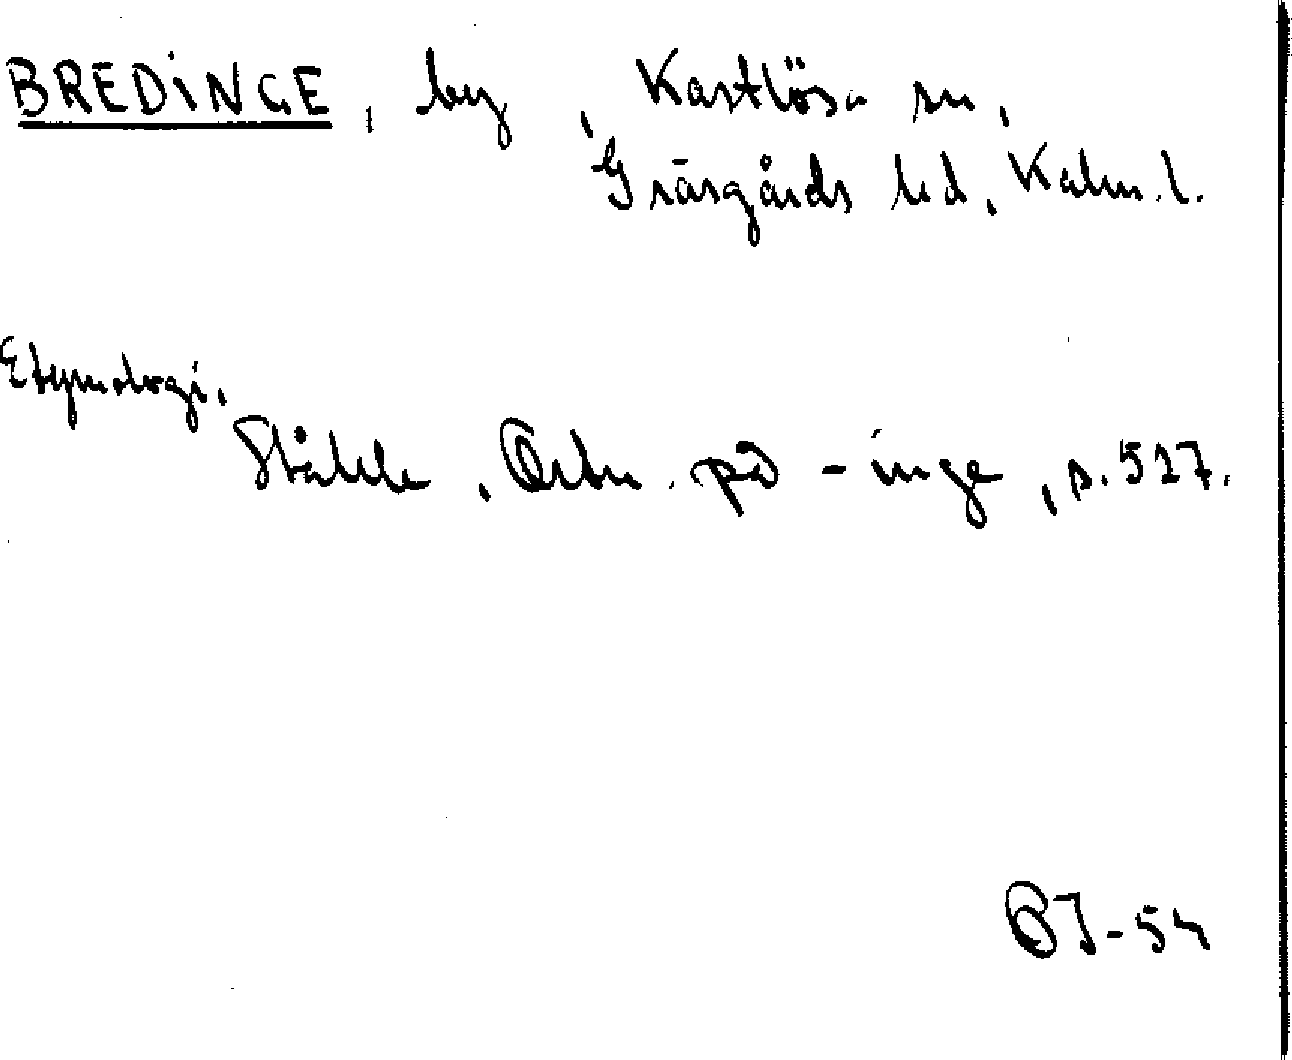 BREDINGE, by, Kastlösa sn,
Gräsgårds hd, Kalm. l.
Etymologi.
Ståhle, Ortn. på -inge, s. 527.
ÖJ-54